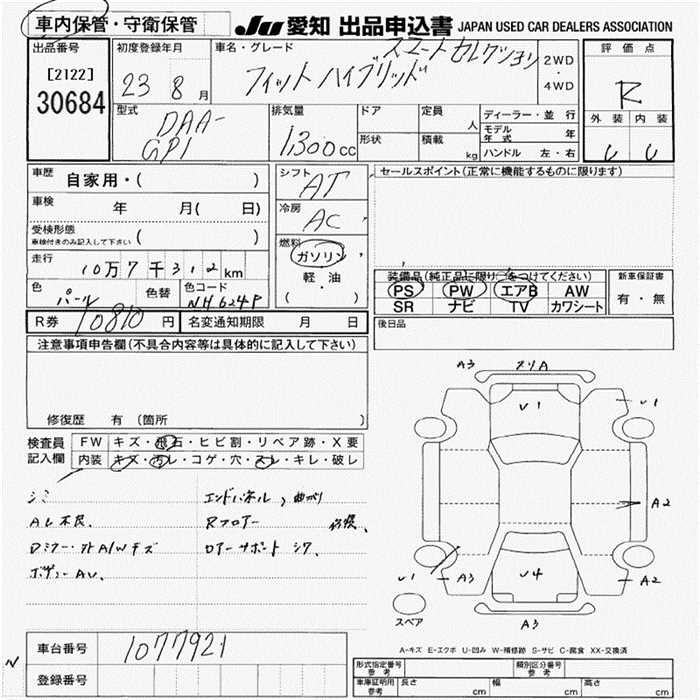 車内保管・守衛保管
JU 愛知 出品申込書 JAPAN USED CAR DEALERS ASSOCIATION
出品番号
[2122]
30684
初度登録年月
23 8 月
車名・グレード
フィット ハイブリッド スマートセレクション
2WD
・
4WD
評価点
R
外装 内装
型式
DAA-
GP1
排気量
1,300 cc
ドア
形状
定員
人
積載
kg
ディーラー・並行
モデル年式 年
ハンドル 左・右
車歴 自家用・( )
車検 年 月( 日)
受検形態
車検付きのみ記入して下さい ( )
走行 10万7千312km
色 パール 色替 色コード NH624P
R券 10810 円 名変通知期限 月 日
シフト AT
冷房 AC
燃料
ガソリン
・
軽・油
( )
セールスポイント(正常に機能するものに限ります)
装備品(純正品に限り○をつけてください)
PS PW エアB AW
SR ナビ TV カワシート
新車保証書
有・無
後日品
注意事項申告欄(不具合内容等は具体的に記入して下さい)
修復歴 有 (箇所 )
検査員
記入欄
FW キズ・飛石・ヒビ割・リペア跡・X要
内装 キズ・汚レ・コゲ・穴・スレ・キレ・破レ
シミ
AC不良、
ボディーAU、
エンドパネル、曲がり
Rフロアー 修復、
A3
U1
U1
A2
U1
A3
U4
A2
A3
スペア
A-キズ E-エクボ U-凹み W-補修跡 S-サビ C-腐食 XX-交換済
車台番号 1077921
登録番号
N
形式指定番号
参考
類別区分番号
参考
車庫証明用
参考
長さ cm 幅 cm 高さ cm